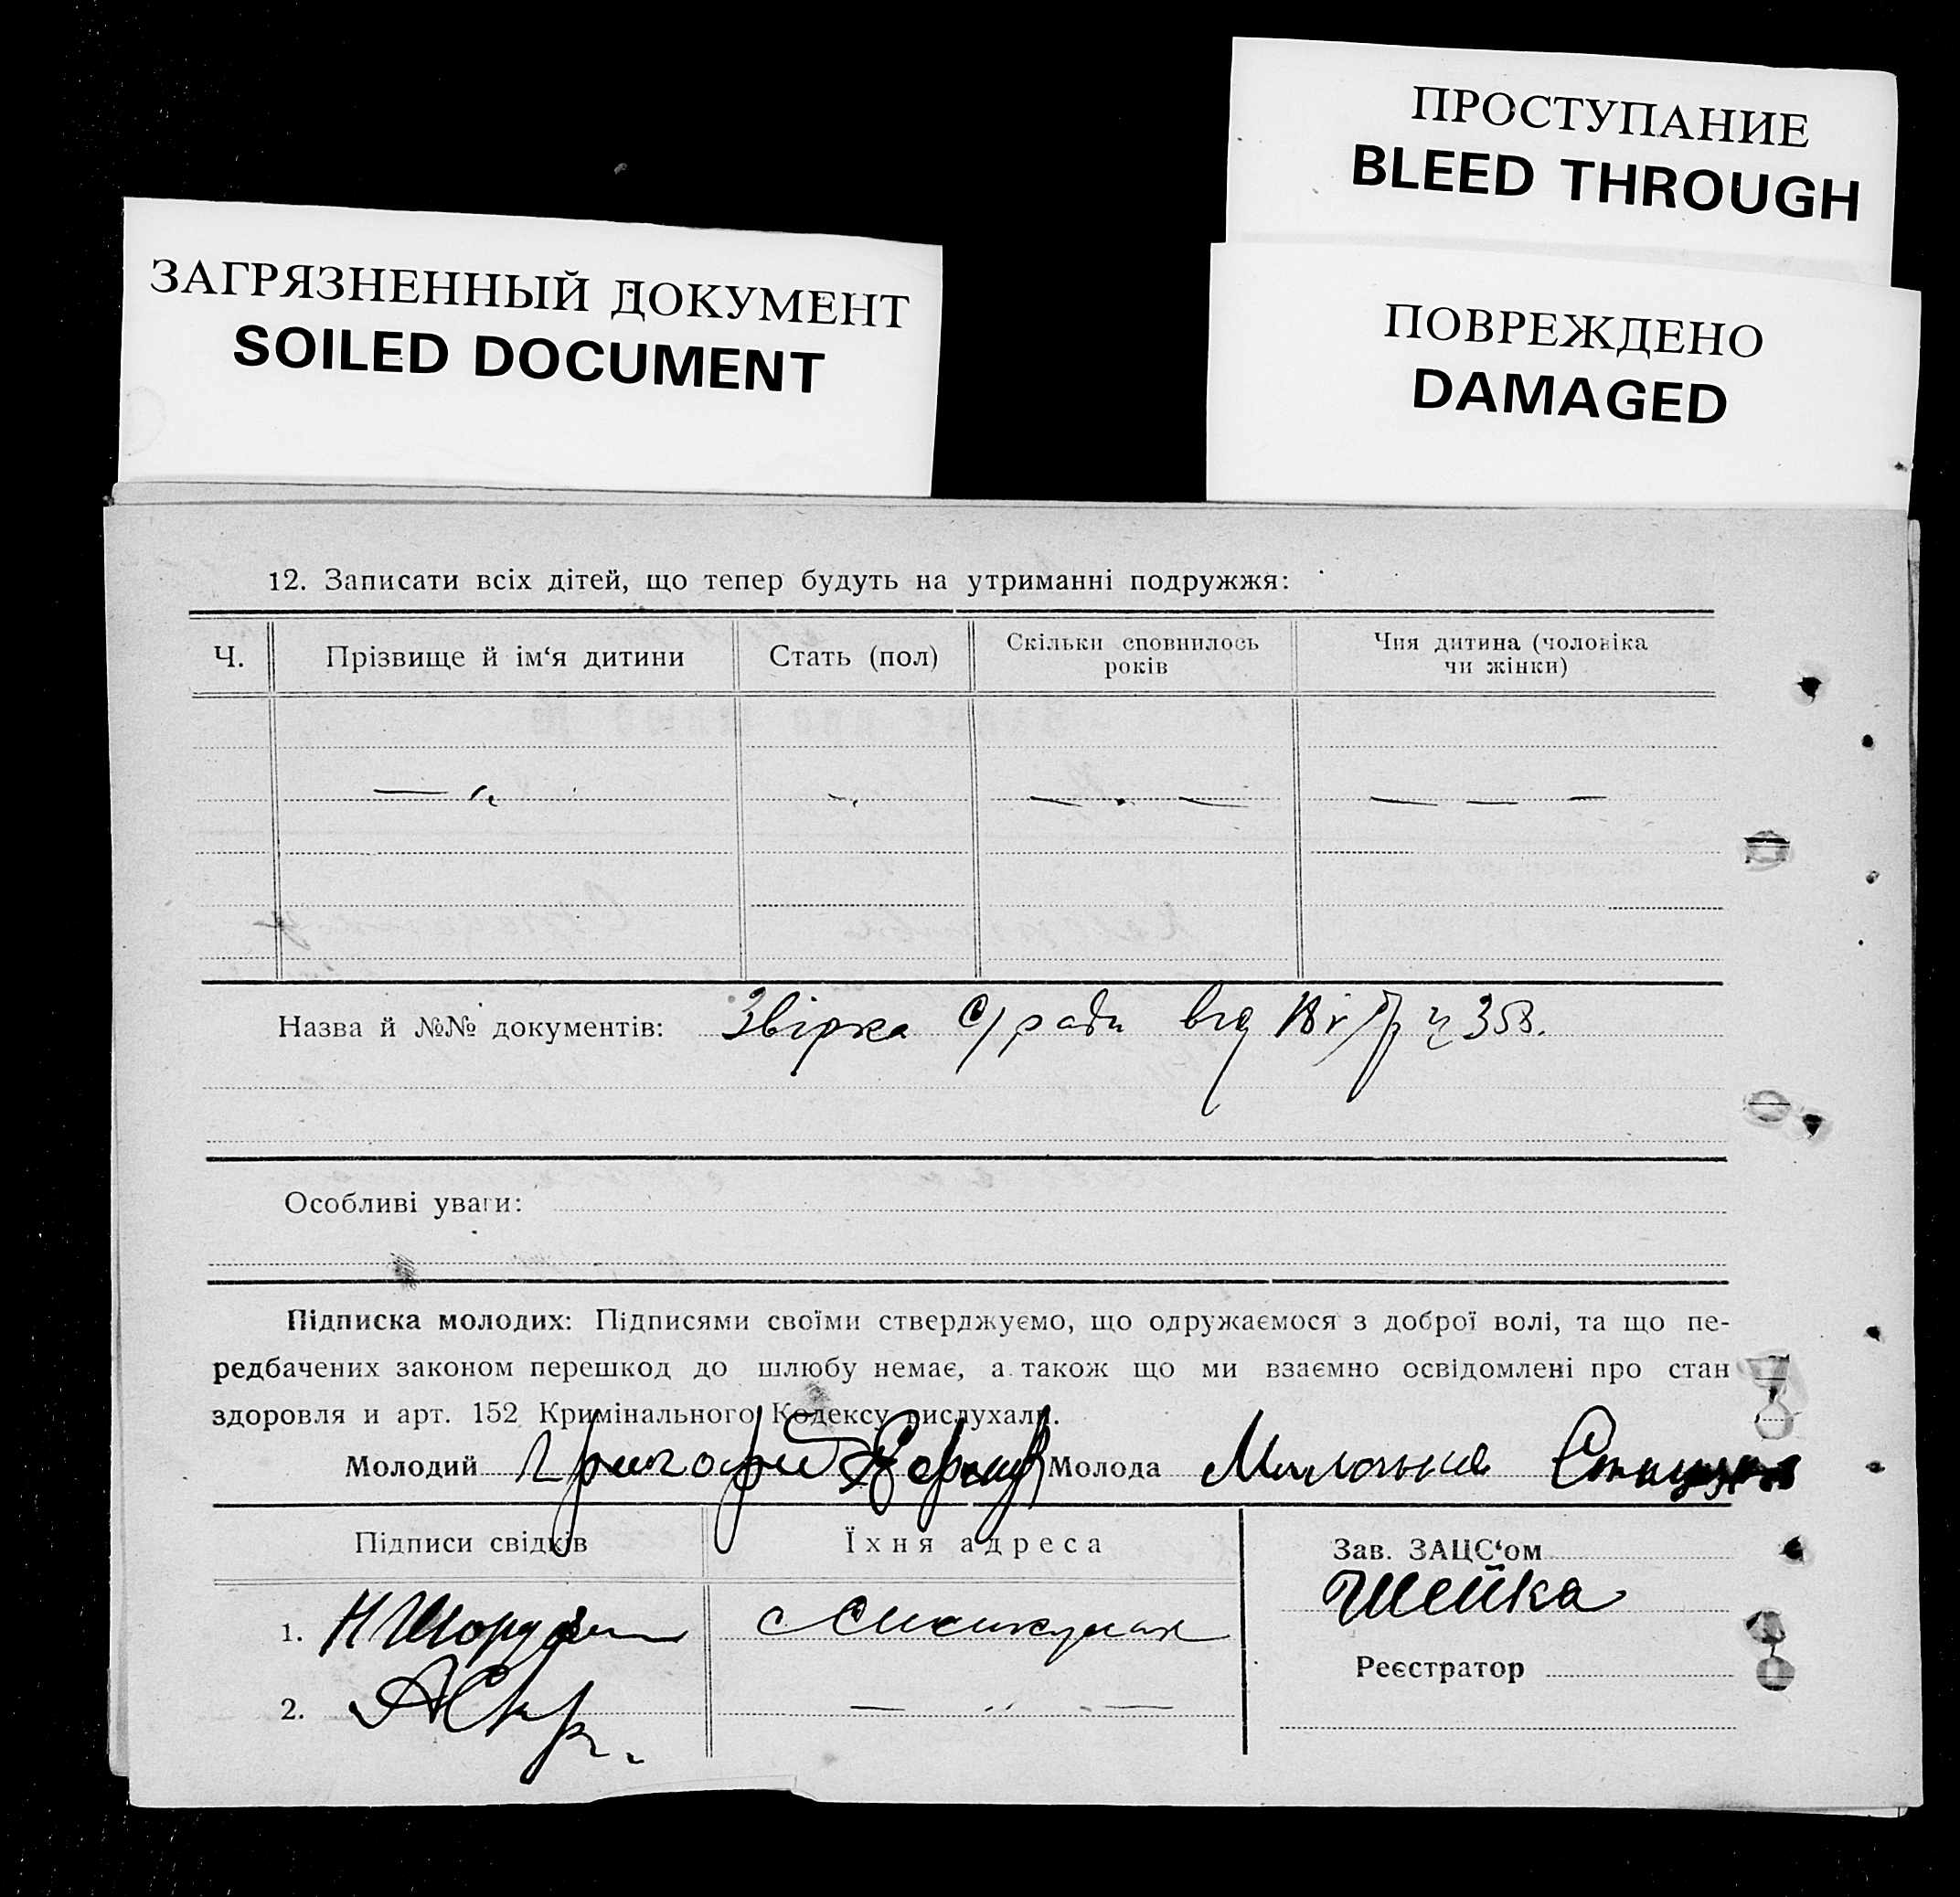 ПРОСТУПАНИЕ
BLEED THROUGH
ЗАГРЯЗНЕННЫЙ ДОКУМЕНТ
SOILED DOCUMENT
ПОВРЕЖДЕНО
DAMAGED
12. Записати всіх дітей, що тепер будуть на утриманні подружжя:
Ч. Прізвище й ім‘я дитини Стать (пол) Скільки сповнилось років Чия дитина (чоловіка чи жінки)
Назва й №№ документів: Звірка с/ради від ч 358.
Особливі уваги:
Підписка молодих: Підписями своїми стверджуємо, що одружаємося з доброї волі, та що пе-
редбачених законом перешкод до шлюбу немає, а також що ми взаємно освідомлені про стан
здоровля и арт. 152 Кримінального Кодексу вислухали.
Молодий Григорій Молода
Підписи свідків Їхня адреса Зав. ЗАЦС‘ом
Шейка
1.
Реєстратор
2.